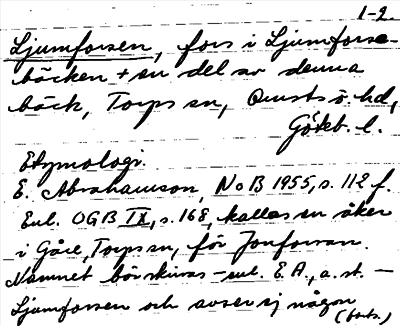 1-2.
Ljumforsen, fors i Ljumforse-
bäcken + en del av denna
bäck, Torps sn, Orusts ö. hd,
Göteb. l.
Etymologi.
E. Abrahamson, NoB 1955, s. 112 f.
Enl. OGB IX, s. 168, kallas en åker
i Gåre, Torps sn, för Jonforran.
Namnet bör skrivas - enl. E.A., a. st. -
Ljumforsen och avser ej någon
(forts.)